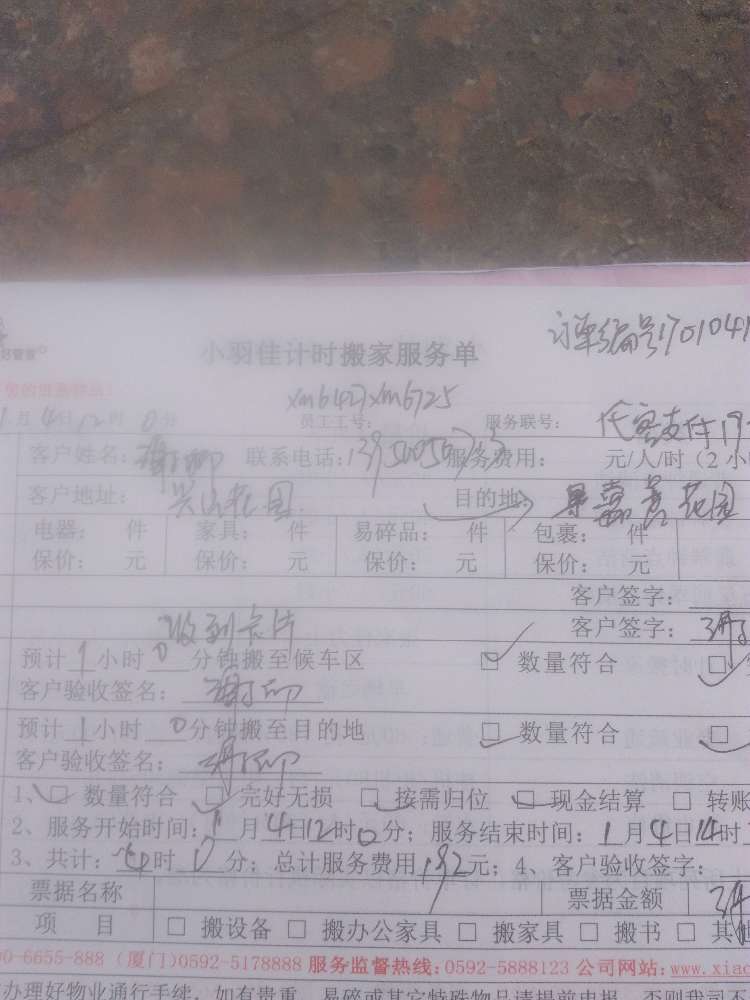 订单编号1701041
好管家
小羽佳计时搬家服务单
xm6427xm6725
1月4日12时0分 员工工号: 服务联号: 代客支付19
客户姓名: 联系电话: 服务费用: 元/人/时（2小
客户地址: 花园 目的地: 嘉景花园
电器: 件 家具: 件 易碎品: 件 包裹: 件
保价: 元 保价: 元 保价: 元 保价: 元
客户签字:
收到卡片 客户签字:
预计1小时0分钟搬至候车区 ☑ 数量符合 ☑
客户验收签名:
预计1小时0分钟搬至目的地 ☑ 数量符合 ☑
客户验收签名:
1、☑ 数量符合 ☑ 完好无损 ☑ 按需归位 ☑ 现金结算 □ 转账
2、服务开始时间:1月4日12时0分; 服务结束时间:1月4日14时
3、共计:4时0分; 总计服务费用192元; 4、客户验收签字:
票据名称 票据金额
项 目 □ 搬设备 □ 搬办公家具 □ 搬家具 □ 搬书 □ 其他
00-6655-888 (厦门)0592-5178888 服务监督热线:0592-5888123 公司网站:www.xiao
办理好物业通行手续，如有贵重、易碎或其它特殊物品请提前申报，否则我司不